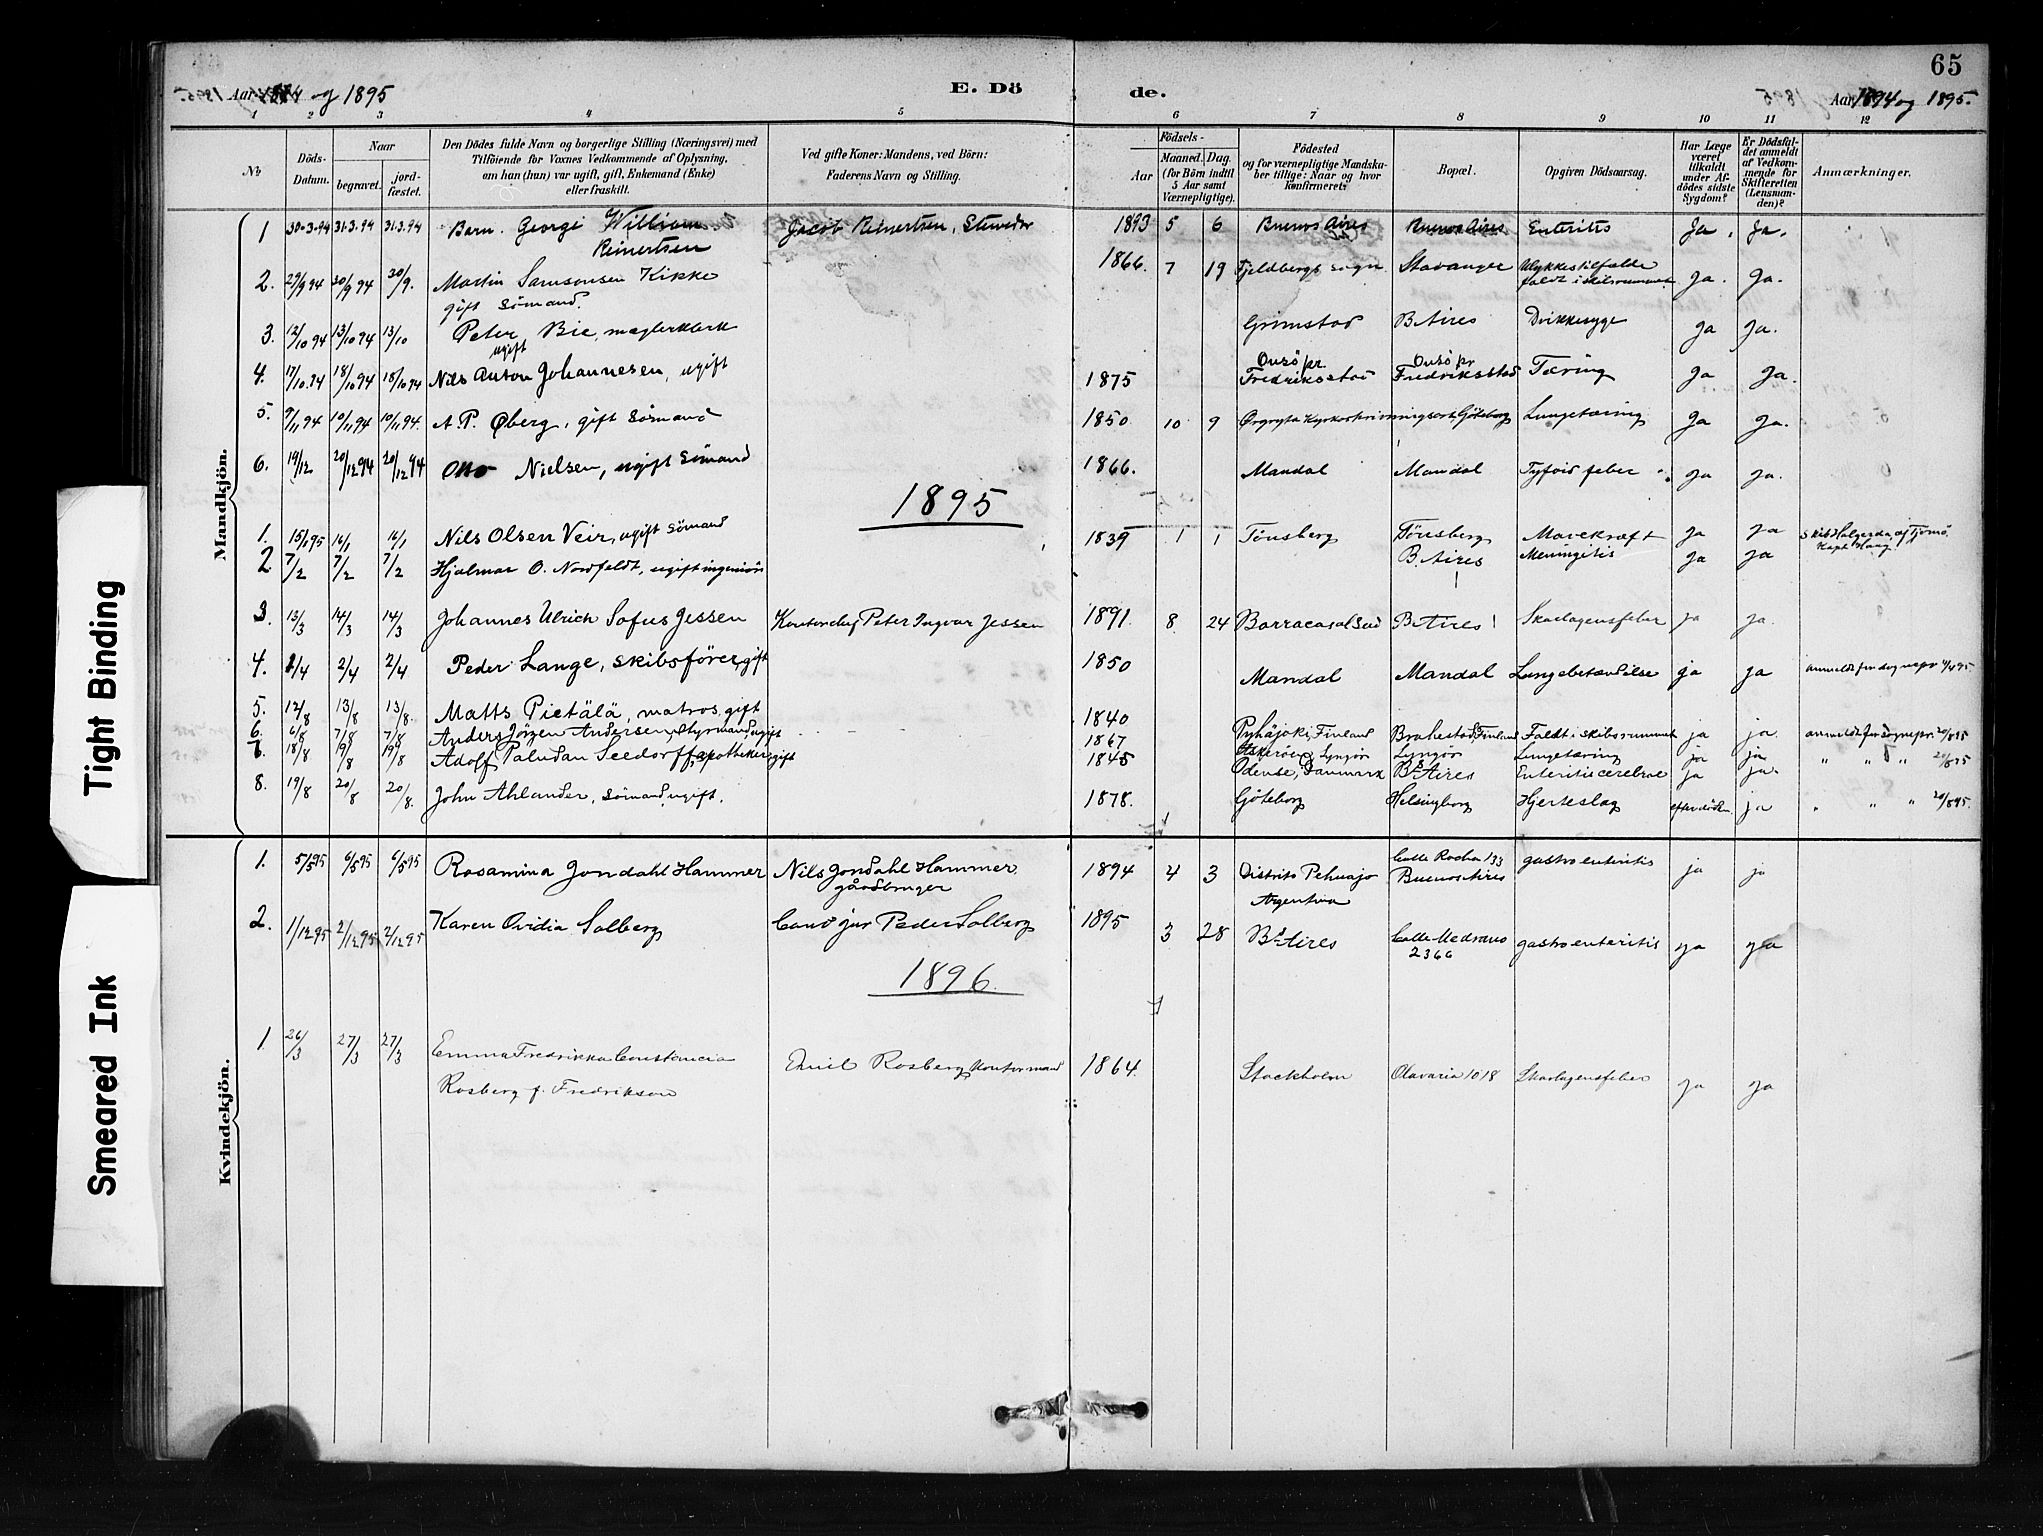 65
Aar 1894 og 1895
E. Dö
de.
Aar 1894 og 1895.
1 2 3 4 5 6 7 8 9 10 11 12
Nö
Döds-Datum.
Naar
begravet.
jord-fæstet.
Den Dödes fulde Navn og borgerlige Stilling (Næringsvei) med
Tilföiende for Voxnes Vedkommende af Oplysning,
om han (hun) var ugift, gift, Enkemand (Enke)
eller fraskilt.
Ved gifte Koner: Mandens, ved Börn:
Faderens Navn og Stilling.
Födsels-
Aar
Maaned. Dag.
(for Börn indtil
5 Aar samt
Værnepligtige).
Födested
og for værnepligtige Mandska-
ber tillige: Naar og hvor
konfirmeret?
Bopæl.
Opgiven Dödsaarsag.
Har Læge
været
tilkaldt
under Af-
dödes sidste
Sygdom?
Er Dödsfal-
det anmeldt
af Vedkom-
mende for
Skifteretten
(Lensman-
den)?
Anmærkninger.
Mandkjön.
1 30-3.94 31-3.94 31.3.94 Barn. Georgi William Jacob Reinertsen, Stuvedor 1893 5 6 Buenos Aires Buenos Aires Enteritis Ja. Ja.
Reinertsen
2. 29/9 94 30/9 94 30/9. Martin Samsonsen Kikke 1866. 7 19 Fjeldbergs sogn Stavanger Ulykkestilfælde Ja. Ja.
faldt i skibsrummet
gift Sömand.
3. 12/10 94 13/10 94 13/10 Peter Bie, mæglerklerk Grimstad B. Aires Drikkesyge Ja Ja.
ugift
4. 17/10.94 18/10 94 18/10 94 Nils Anton Johannesen, ugift 1875 Onsö pr. Fredriksstad Onsö pr Fredriksstad Tæring Ja Ja.
5. 9/11 94 10/11 94 10/11 94. A. P. Øberg, gift sömand 1850. 10 9 Göteborg Lungetæring Ja Ja.
6. 19/12 20/12 94 20/12 94 Otto Nielsen, ugift Sömand 1866. Mandal Mandal Tyfoid feber Ja Ja.
1895
1. 15/1 95 16/1 16/1 Nils Olsen Veir, ugift sömand 1839 1 1 Tönsberg Tönsberg Mavekræft Ja Ja Skib Halgerda af Tjömö.
Kapt Haag
2. 7/2 7/2 7/2 Hjalmar O. Nordfeldt, ugift ingeniör B. Aires Meningitis Ja Ja
3. 13/3 14/3 14/3 Johannes Ulrich Sofus Jessen Peter Ingvar Jessen 1891. 8. 24 Barracas al Sud B. Aires Skarlagensfeber ja ja.
4. 1/4 2/4 2/4 Peder Lange, skibsförer, gift 1850 Mandal Mandal Lungebetændelse ja ja anmeldt for sognepr 4/4 95
5. 12/8 13/8 13/8. Matts Pietälä, matros, gift 1840 Pyhäjoki, Finland Brahestad, Finland Faldt i skibsrummet ja ja. anmeldt for sognepr. 20/8 95
6. 6/8 7/8 7/8 Anders Jörgen Andersen, styrmand, ugift 1867 Askeröen, Lyngör Lyngör Lungetæring ja ja. " " " 20/8 95
7. 18/8 19/8 19/8 Adolf Paludan Seedorff, apotheker, gift 1845 Odense, Danmark Bs Aires Enteritis cerebrae ja ja.
8. 19/8 20/8 20/8. John Ahlander, sömand, ugift. 1878. Göteborg Helsingborg Hjerteslag efter döden ja " " " 20/8 95.
Kvindekjön.
1. 5/5 95 6/5 95 6/5 95 Rosamina Jondahl Hammer Nils Jondahl Hammer 1894 4 3 Distrito Pehuajo Calle Rocha 133 gastro enteritis ja ja
gårdbruger Argentina Buenos Aires
2. 1/12 95 2/12 95 2/12 95 Karen Ovidia Solberg Cand jur Peder Solberg 1895 3 28 Bs Aires Calle Medrano gastro enteritis ja ja
2366
1896.
1. 26/3 27/3 27/3 Emma Fredrikka Constancia Emil Rosberg kontormand 1864. Stockholm Olavaria 1018 Skarlagensfeber ja ja
Rosberg f. Fredrikson
Tight Binding
Smeared Ink